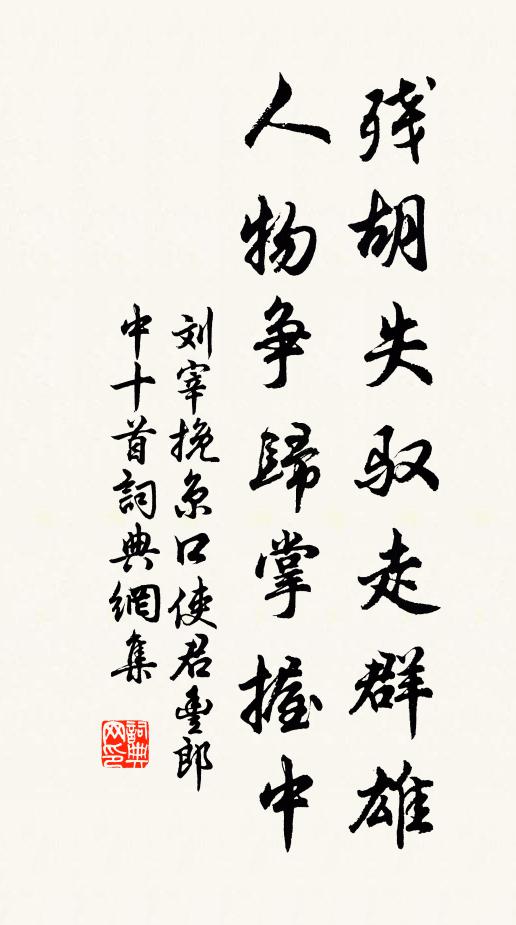 残胡失驭走群雄
人物争歸掌握中
刘宰挽京口使君豊郎
中十首詞典網集
詞典
网印